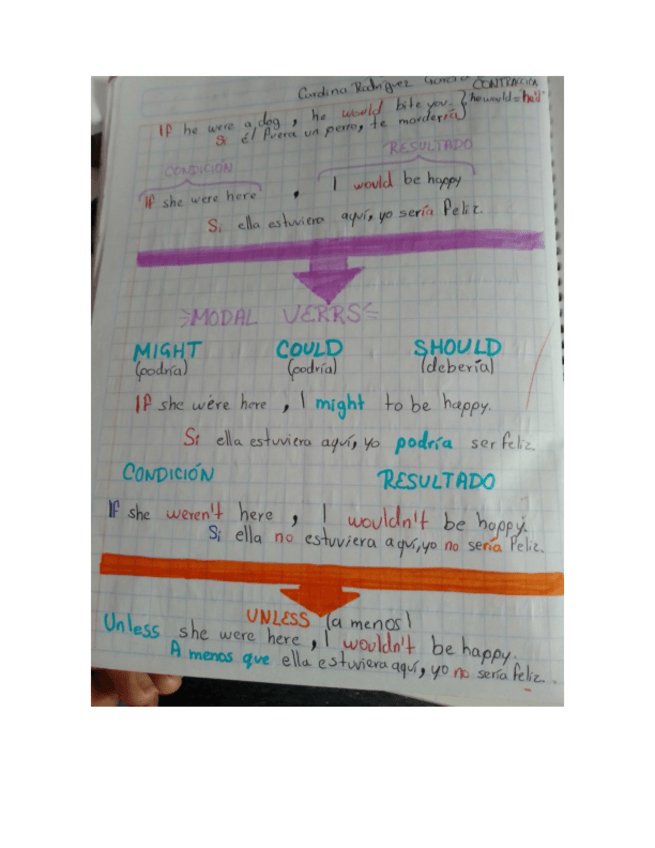 Cardina Rodríguez CONTRACCIÓN
If he were a dog, he would bite you. } he would = he'd
Si él fuera un perro, te mordería
CONDICIÓN RESULTADO
If she were here , I would be happy
Si ella estuviera aquí, yo sería feliz
MODAL VERRS
MIGHT COULD SHOULD
(podría) (podría) (debería)
If she were here , I might to be happy.
Si ella estuviera aquí, yo podría ser feliz.
CONDICIÓN RESULTADO
If she weren't here , I wouldn't be happy.
Si ella no estuviera aquí, yo no sería feliz.
UNLESS (a menos)
Unless she were here , I wouldn't be happy.
A menos que ella estuviera aquí, yo no sería feliz.